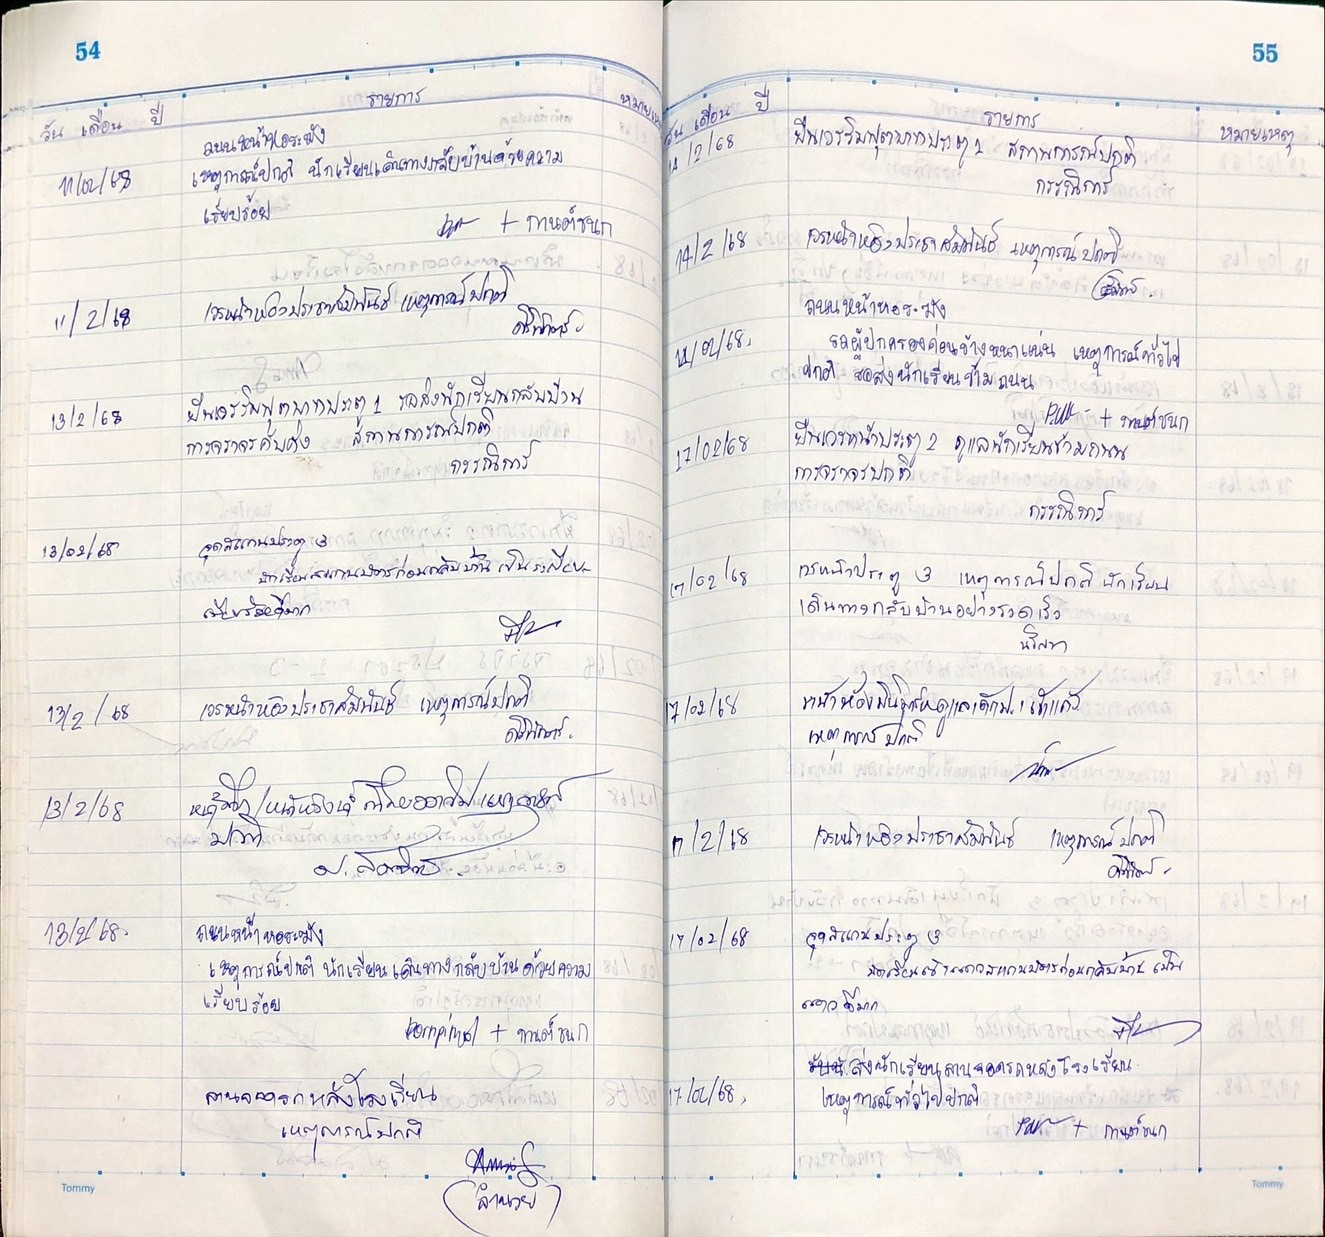 54
วัน เดือน ปี
รายการ
หมายเหตุ
ถนนหน้าหอระฆัง
11/02/68
เหตุการณ์ปกติ นักเรียนเดินทางกลับบ้านด้วยความ
เรียบร้อย
+ กานต์ชนก
11/2/68
เวรหน้าห้องประชาสัมพันธ์ เหตุการณ์ปกติ
13/2/68
ยืนเวรริมฟุตบาทประตู 1 รอส่งนักเรียนกลับบ้าน
การจราจรคับคั่ง สถานการณ์ปกติ
กรรณิการ์
13/02/68
จุดสแกนประตู 3
นักเรียนสแกนบัตรก่อนกลับบ้าน เป็นระเบียบ
เรียบร้อยดีมาก
13/2/68
เวรหน้าห้องประชาสัมพันธ์ เหตุการณ์ปกติ
13/2/68
ปกติ
13/2/68.
ถนนหน้าหอระฆัง
เหตุการณ์ปกติ นักเรียนเดินทางกลับบ้านด้วยความ
เรียบร้อย
+ กานต์ชนก
ลานจอดรถหลังโรงเรียน
เหตุการณ์ปกติ
(อำนวย)
Tommy
55
วัน เดือน ปี
รายการ
หมายเหตุ
14/2/68
ยืนเวรริมฟุตบาทประตู 1 สถานการณ์ปกติ
กรรณิการ์
14/2/68
เวรหน้าห้องประชาสัมพันธ์ เหตุการณ์ปกติ
ถนนหน้าหอระฆัง
14/02/68.
รถผู้ปกครองค่อนข้างหนาแน่น เหตุการณ์ทั่วไป
ปกติ รอส่งนักเรียนข้ามถนน
+ กานต์ชนก
17/02/68
ยืนเวรหน้าประตู 2 ดูแลนักเรียนข้ามถนน
การจราจรปกติ
กรรณิการ์
17/02/68
เวรหน้าประตู 3 เหตุการณ์ปกติ นักเรียน
เดินทางกลับบ้านอย่างรวดเร็ว
17/02/68
เหตุการณ์ปกติ
17/2/68
เวรหน้าห้องประชาสัมพันธ์ เหตุการณ์ปกติ
17/02/68
จุดสแกนประตู 3
นักเรียนสแกนบัตรก่อนกลับบ้าน เป็น
ส่งนักเรียนลานจอดรถหลังโรงเรียน
17/02/68.
เหตุการณ์ทั่วไปปกติ
+ กานต์ชนก
Tommy